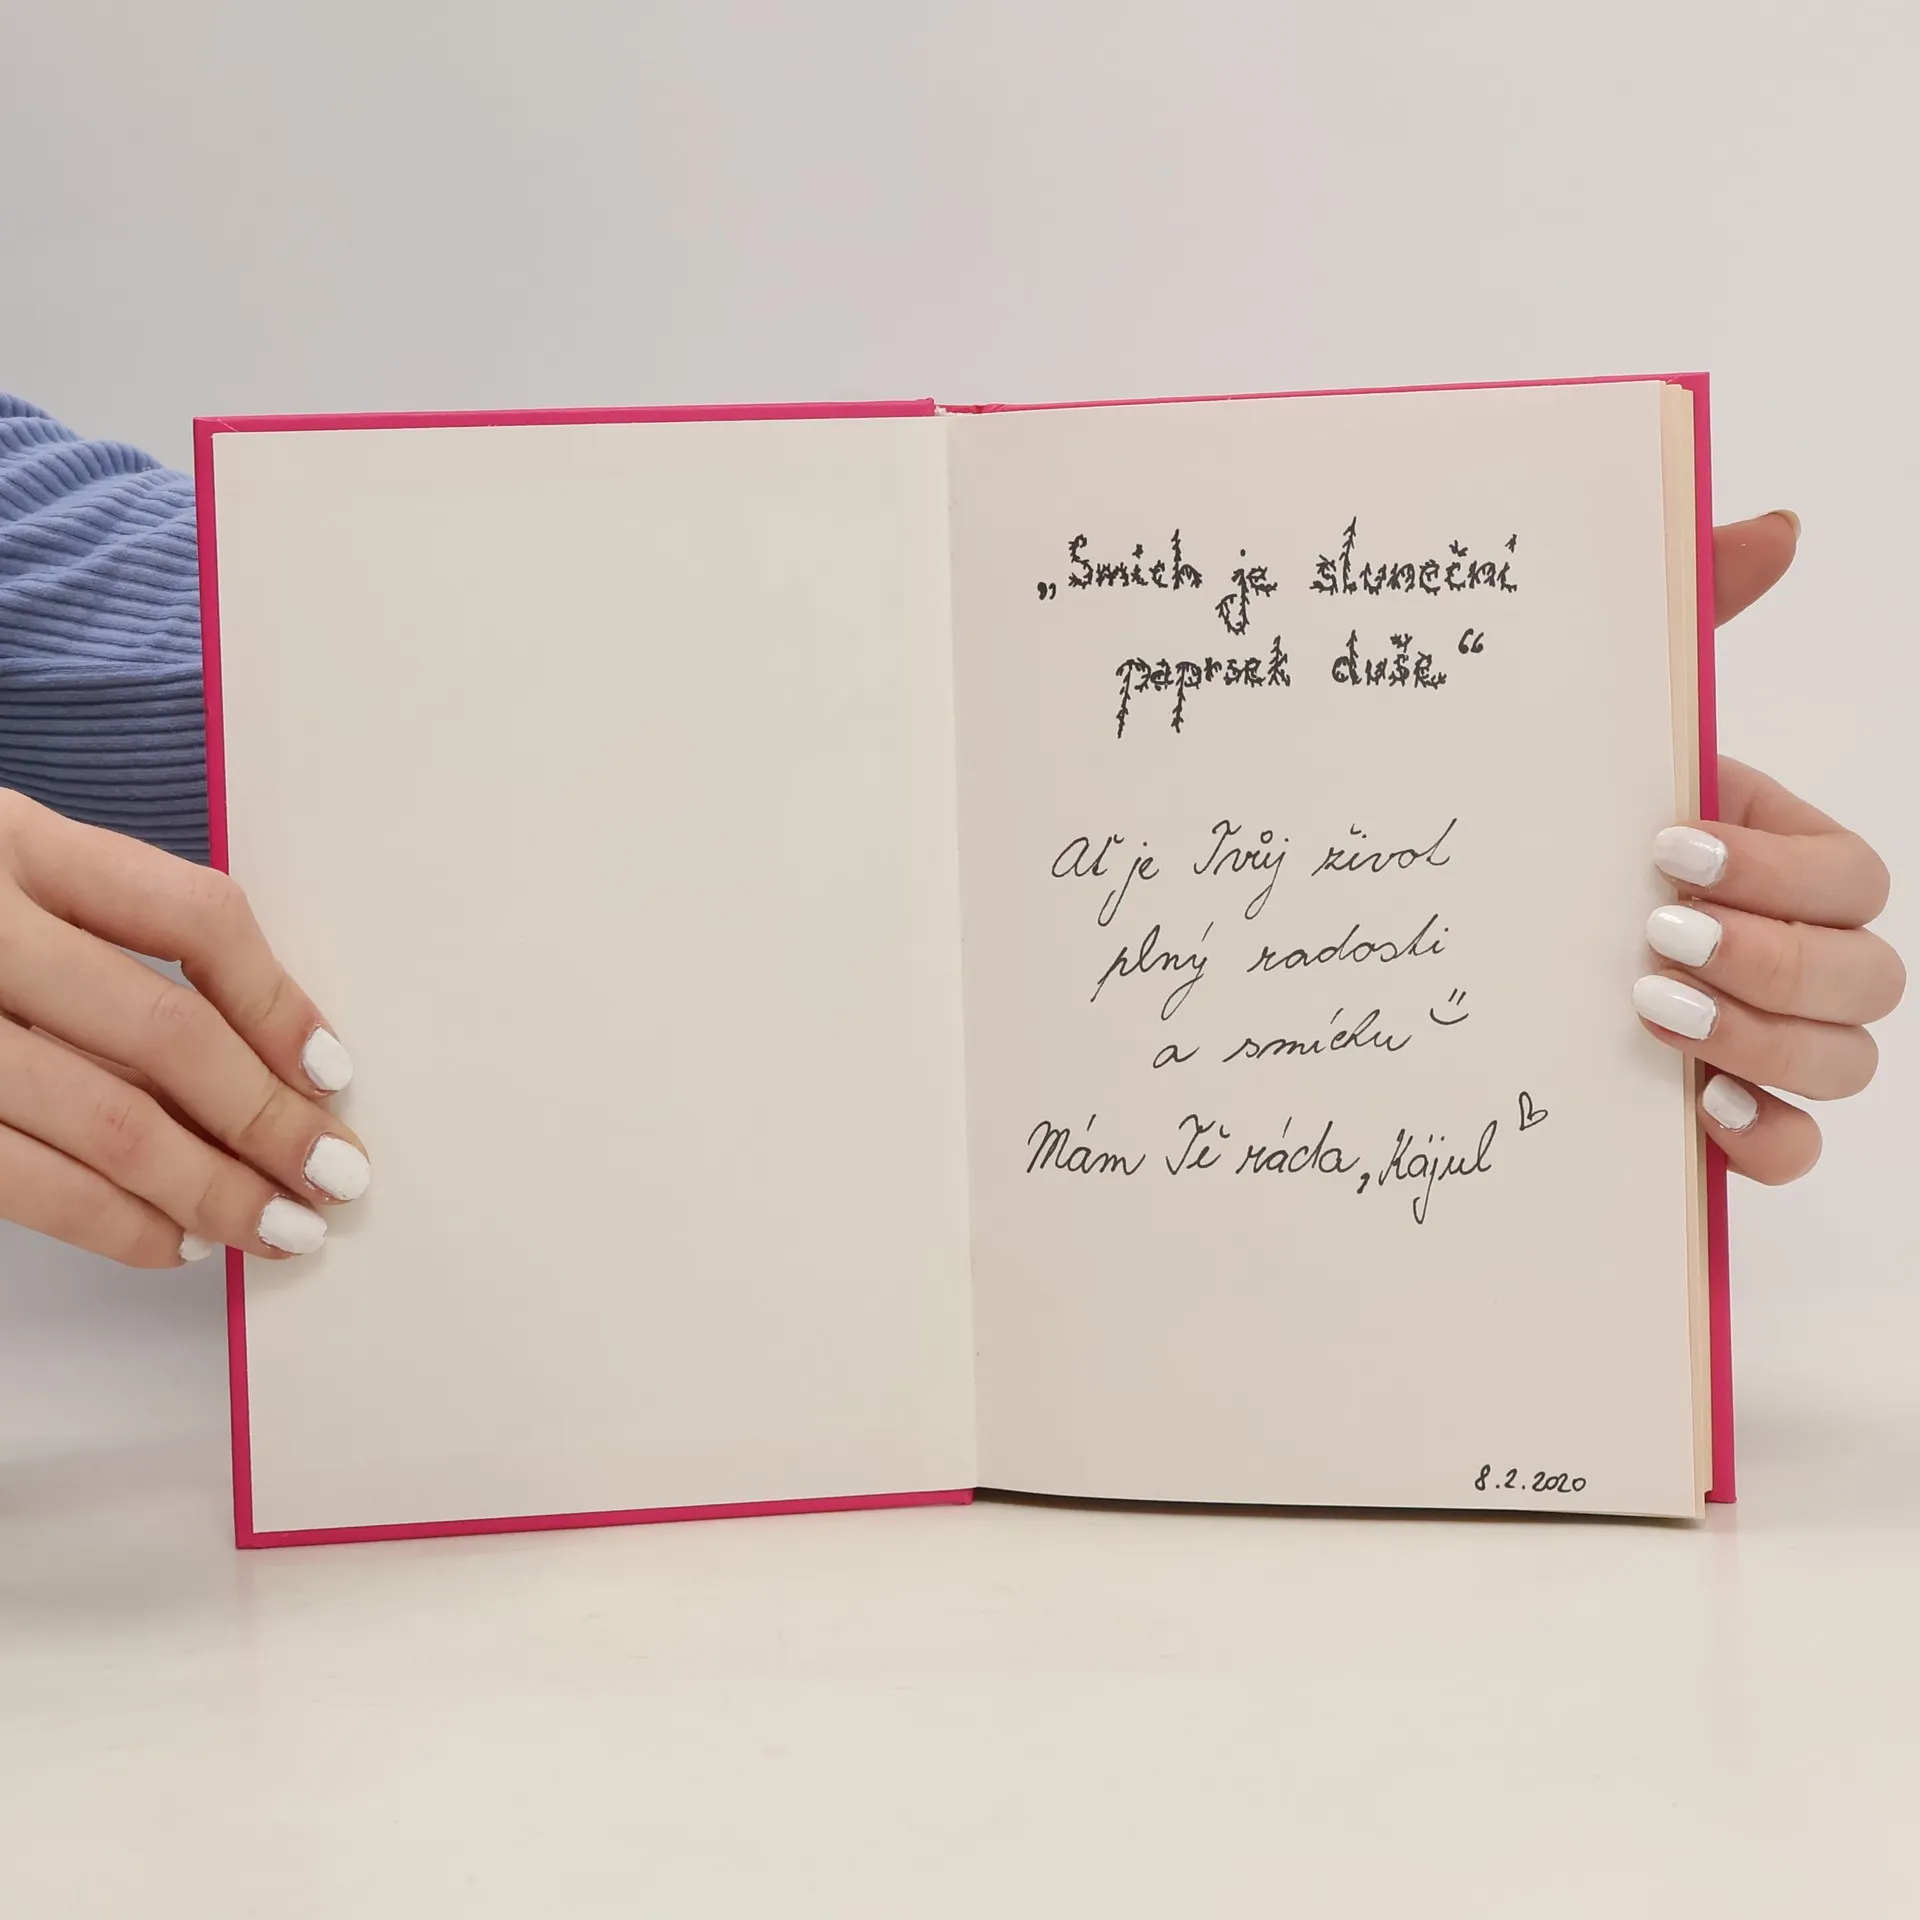 „Smích je sluneční
paprsek duše.“
Ať je Tvůj život
plný radosti
a smíchu
Mám Tě ráda, Kájul
8.2.2020